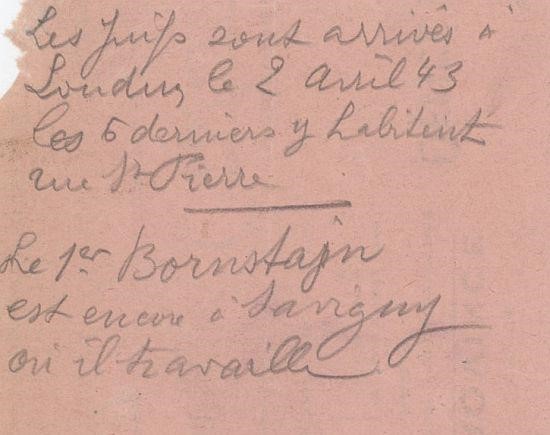 Les Juifs sont arrivés à
Loudun le 2 avril 43
les 6 derniers y habitent
rue St Pierre
Le 1er Bornstajn
est encore à Savigny
où il travaille